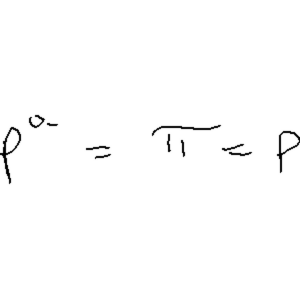 pᵃ = π = p